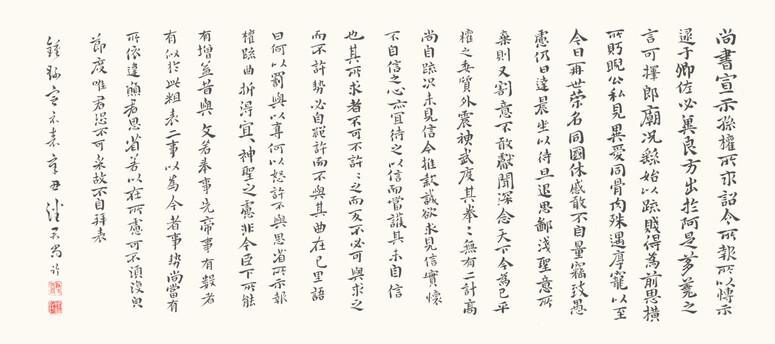 尚書宣示孫權所求詔令所報所以博示
逮于卿佐必冀良方出於阿是芻蕘之
言可擇郎廟況繇始以疏賤得為前恩橫
所眄睨公私見異愛同骨肉殊遇厚寵以至
今日再世榮名同國休慼敢不自量竊致愚
慮仍日達晨坐以待旦退思鄙淺聖意所
棄則又割意不敢獻聞深念天下今為已平
權之委質外震神武度其拳〻無有二計高
尚自疏況未見信今推款誠欲求見信實懷
不自信之心亦宜待之以信而當護其未自信
也其所求者不可不許〻之而反不必可與求之
而不許勢必自絕許而不與其曲在己里語
曰何以罰與以奪何以怒許不與思省所示報
權疏曲折得宜〻神聖之慮非今臣下所能
有增益昔與文若奉事先帝事有數者
有似於此粗表二事以為今者事勢尚當有
所依違願君思省若以在所慮可不須復皃
節度唯君恐不可采故不自拜表
鍾繇宣示表辛丑